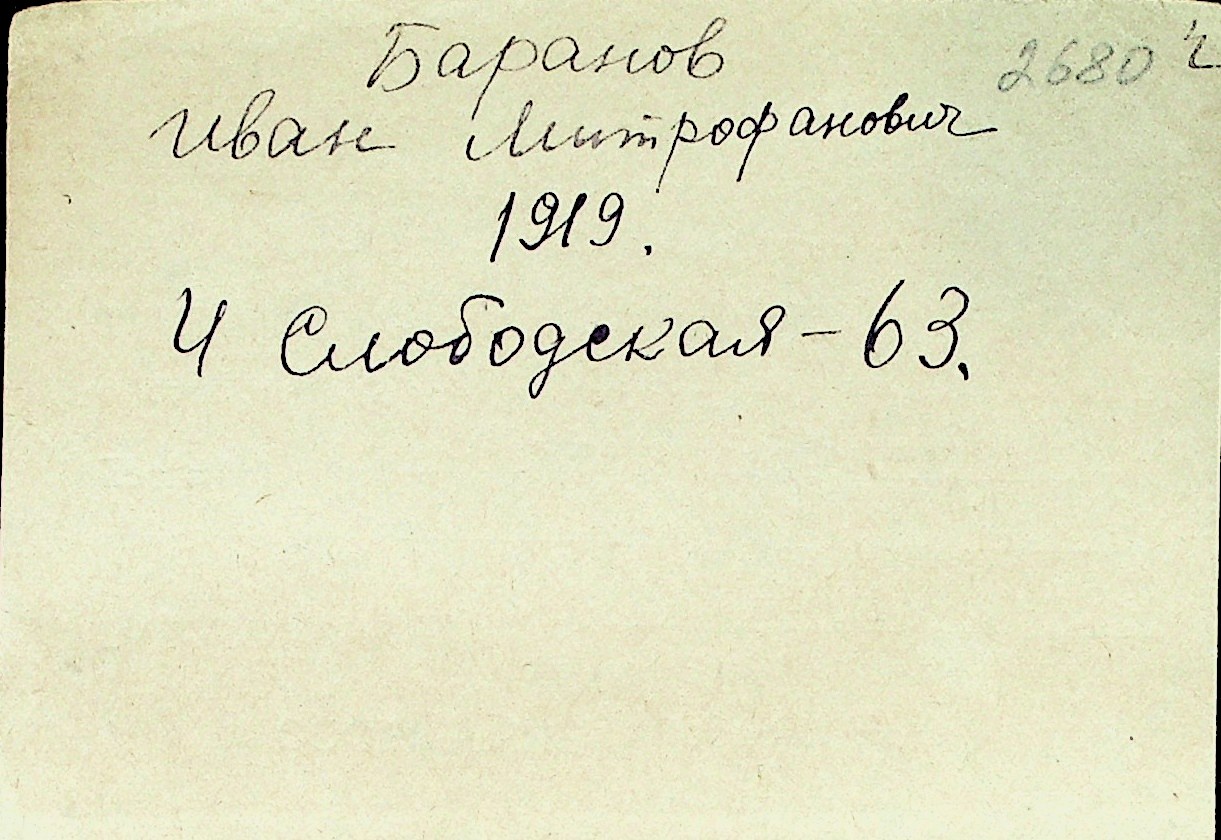 Баранов 2680 ч
Иван Митрофанович
1919.
4 Слободская - 63.